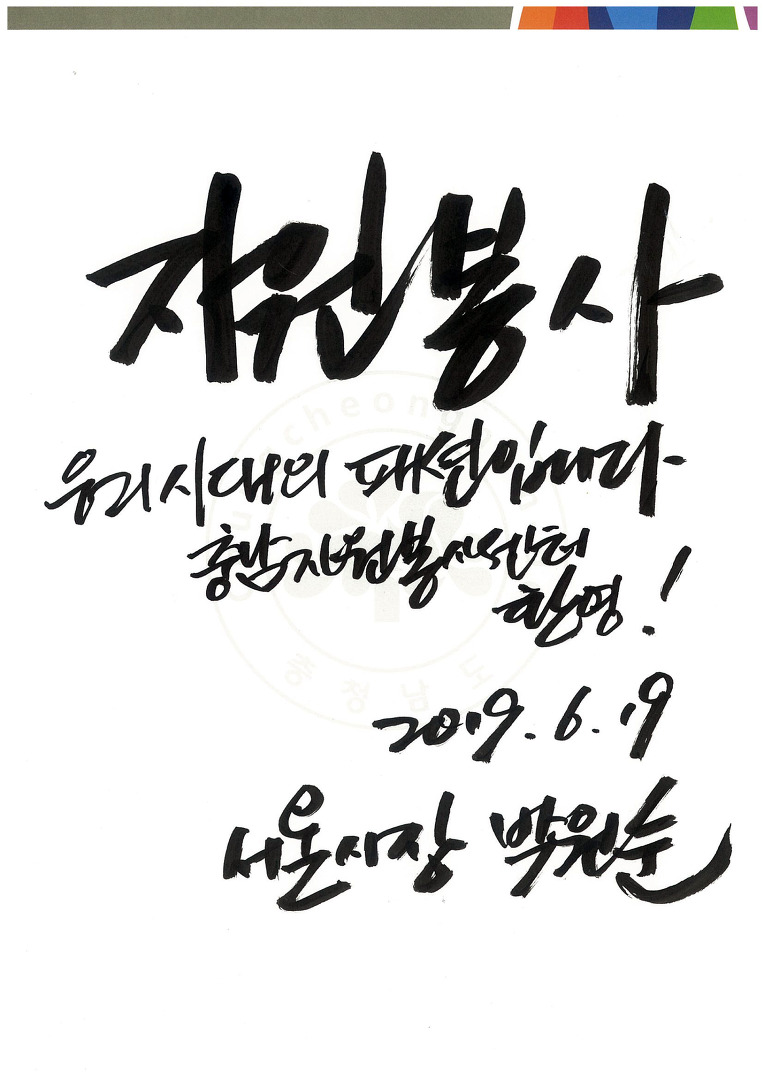 자원봉사
우리 시대의 패션입니다
충남자원봉사센터
환영!
2019. 6. 19
서울시장 박원순
충청남도